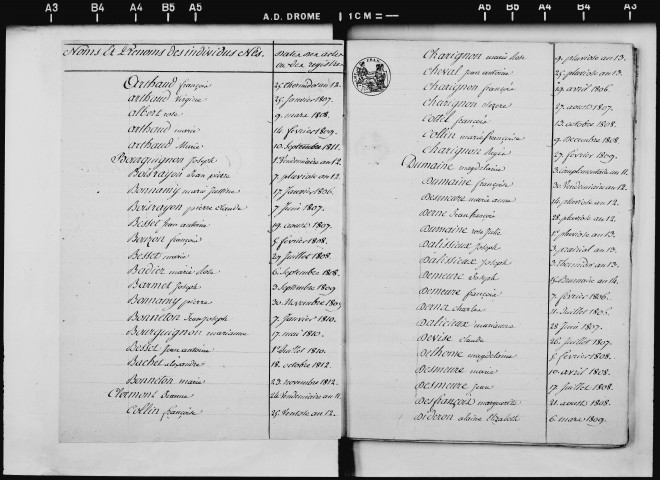 A3 B4 A4 B5 A5 A.D. DROME 1CM= A5 B5 A4 B4 A3
Noms Et Prénoms des individus Nés. Dates des actes ou des registres
Arthaud françois 25 thermidor an 12.
arthaud virginie 25 janvier 1807.
albert rose 9 mars 1808.
arthaud marie 14 février 1809.
arthaud Marie 10 Septembre 1811.
Bourguignon Joseph 1er Vendemiaire an 12.
Boisrayon Jean pierre 7 pluviose an 12.
Bonnamy marie Justine 17 Janvier 1806.
Boisrayon pierre claude 7 Juin 1807.
Besset Jean antoine 19 aoust 1807.
Bouzon françois 5 février 1808.
Besset marie 29 Juillet 1808.
Badier marie rose 6 Septembre 1808.
Barnet Joseph 3 Septembre 1809
Bonnamy pierre 30 Novembre 1809
Bonneton Jean Joseph 7 Janvier 1810.
Bourguignon marianne 17 mai 1810.
Besset Jean antoine 1er Juillet 1810.
Bachet alexandre 18 octobre 1812.
Bonneton marie 23 novembre 1812.
Clermont Jeanne 24 Vendemiaire an 11.
Collin françoise 25 Ventose an 12.
Charignon marie rose 9 pluviose an 13.
Cheval jean antoine 25 pluviose an 13.
Charignon françois 19 avril 1806.
Charignon 27 aout 1807.
Cottel françois 13 octobre 1808.
Collin marie françoise 9 décembre 1808.
Charignon 27 février 1809.
Dumaine magdelaine 3 complémentaire an 11.
Dumaine françoise 30 Vendemiaire an 12.
Desmeure marie anne 14 pluviose an 12.
Derne Jean françois 28 pluviose an 12.
Dumaine rose Julie 17 pluviose an 13.
Dalissieux Joseph 3 prairial an 13.
Dalissieux Joseph 3 thermidor an 13.
Demeure Joseph 15 Brumaire an 14.
Demeure françois 7 février 1806.
Derna charles 11 Juillet 1806.
Dalicieux marianne 28 Juin 1807.
Devise claude 26 Juillet 1807.
Delhome magdelaine 5 février 1808.
Desmeure marie 10 avril 1808.
Desmeure jean 17 Juillet 1808.
Desfrançois marguerite 21 aoust 1808.
Dideron Elizabeth 6 mars 1809.